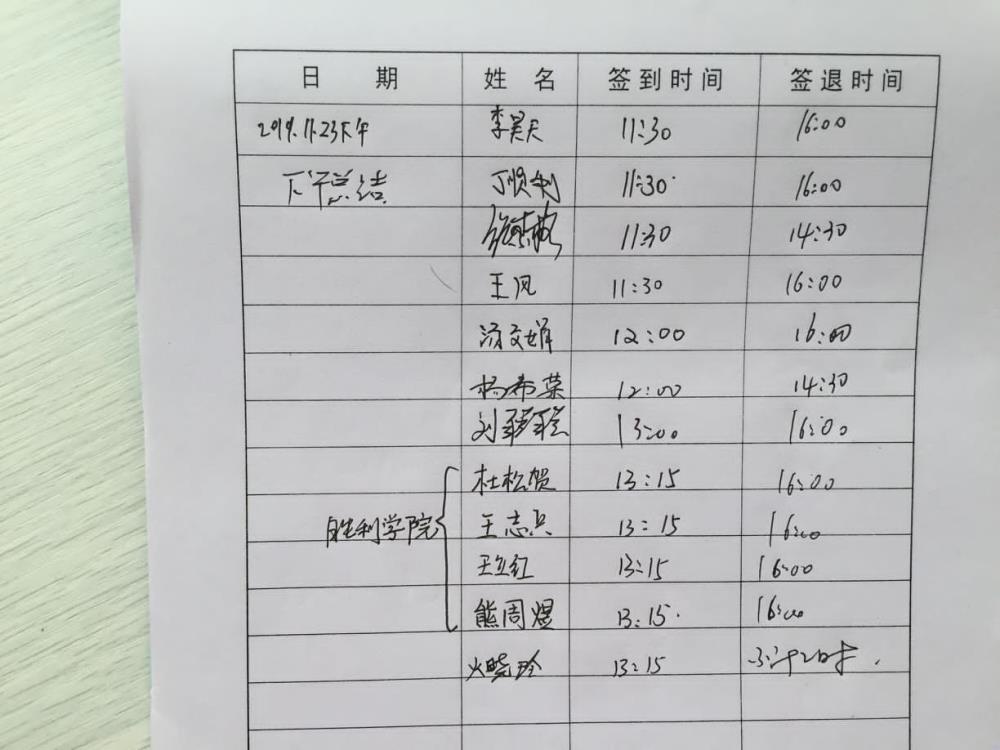 日 期 姓 名 签到时间 签退时间
2019.11.23下午 李昊天 11:30 16:00
下午总结 丁顺利 11:30 16:00
11:30 14:30
王凤 11:30 16:00
汤文娟 12:00 16:00
杨希菜 12:00 14:30
刘 13:00 16:00
杜松贺 13:15 16:00
胜利学院 王志兵 13:15 16:00
王立红 13:15 16:00
熊周煜 13:15 16:00
火晓玲 13:15 不计时